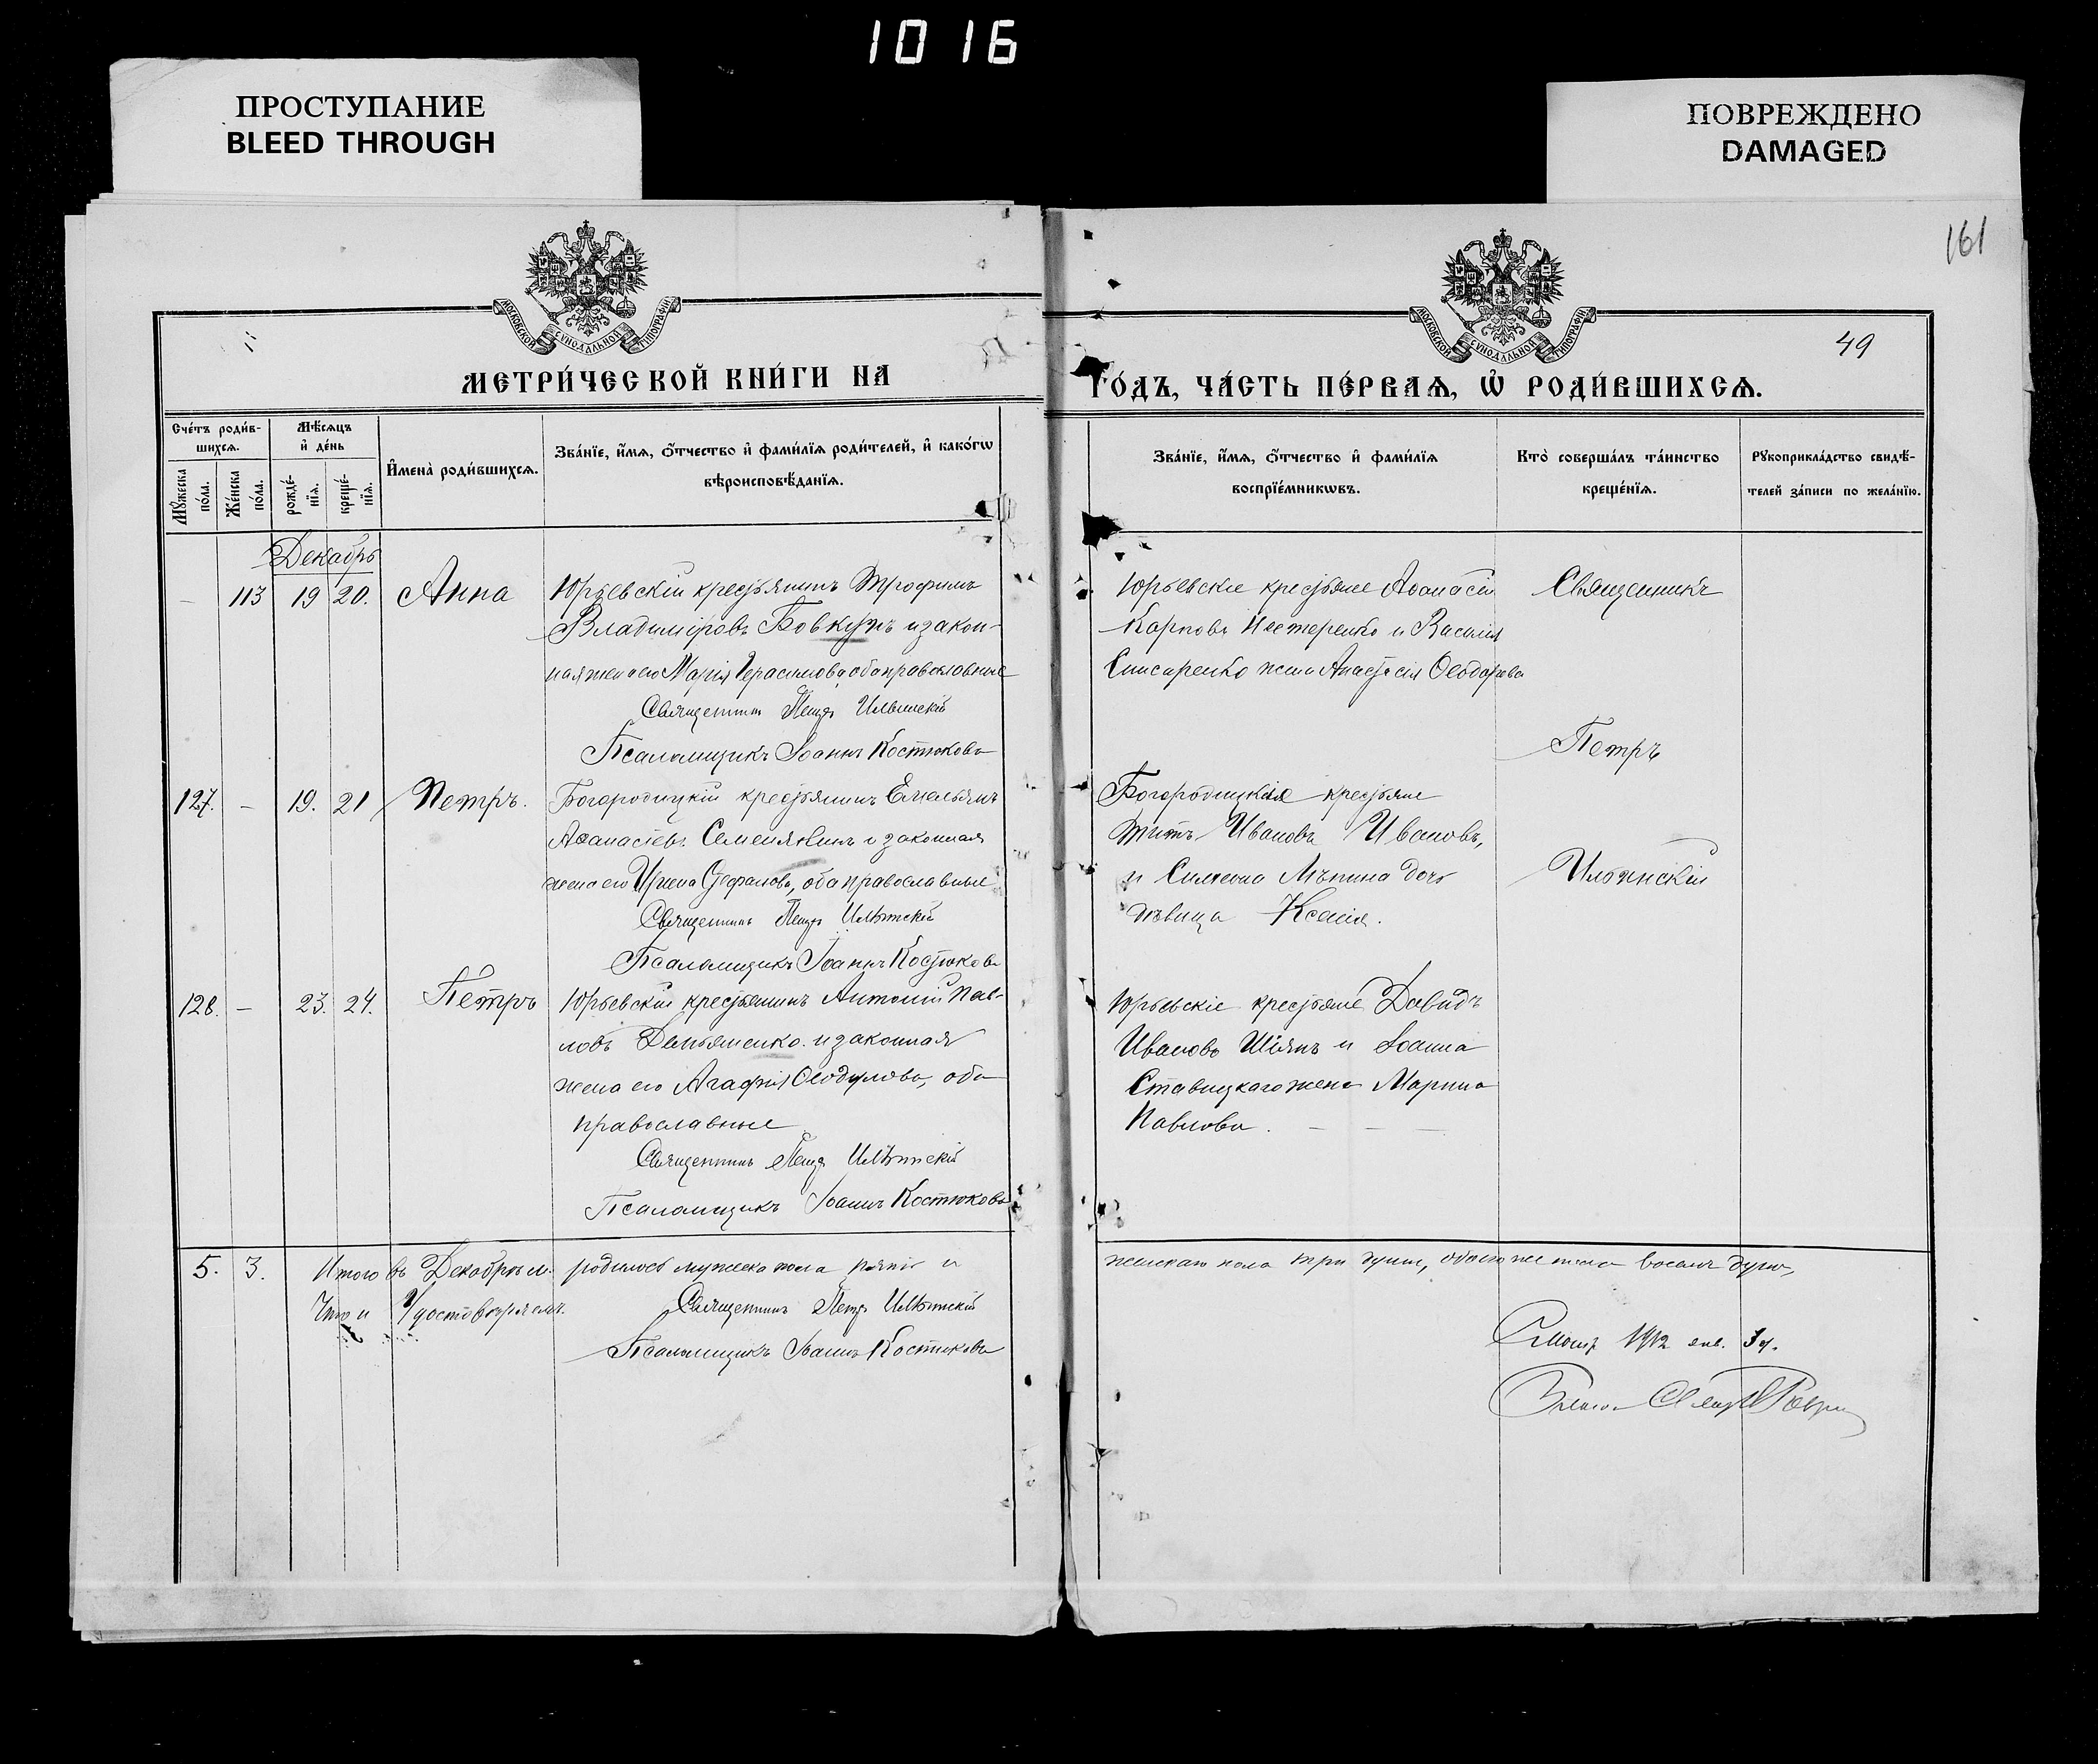 1016
ПРОСТУПАНИЕ
BLEED THROUGH
ПОВРЕЖДЕНО
DAMAGED
161
МОСКОВСКОЙ СУНОДАЛЬНОЙ ТИПОГРАФІИ
МОСКОВСКОЙ СУНОДАЛЬНОЙ ТИПОГРАФІИ
49
МЕТРИ́ЧЕСКОЙ КНИ́ГИ НА
ГО́ДЪ, ЧА́СТЬ ПЕ́РВАѦ, Ѿ РОДИ́ВШИХСѦ.
Сче́тъ роди́в-
шихсѧ.
Мꙋ́жеска по́ла.
Же́нска по́ла.
Мѣ́сѧцъ
и҆ де́нь
рожде́-
нїѧ.
креще́-
нїѧ.
И҆мена̀ роди́вшихсѧ.
Зва́нїе, и҆́мѧ, ѻ҆́тчество и҆ фами́лїѧ роди́телей, и҆ како́гѡ
вѣроисповѣ́данїѧ.
Зва́нїе, и҆́мѧ, ѻ҆́тчество и҆ фами́лїѧ
воспрїе́мникѡвъ.
Кто̀ соверша́лъ та́инство
креще́нїѧ.
Рꙋкоприкла́дство свидѣ́-
телей за́писи по жела́нїю.
Декабрь
— 113 19 20. Анна
Юрьевскій крестьянинъ Трофимъ
Владиміровъ Бовкунъ и закон-
ная жена его Марія Герасимова оба православные
Священникъ Петръ Ильинскій
Псаломщикъ Іоаннъ Костюковъ
Юрьевскіе крестьяне Аѳанасій
Карповъ Нестеренко и Василія
Слисаренко жена Анастасія Ѳеодорова
Священникъ
Петръ
Ильинскій
127. — 19. 21 Петръ.
Богородицкій крестьянинъ Емельянъ
Аѳанасіевъ и законная
жена его Ирина Стефанова, оба православные
Священникъ Петръ Ильинскій
Псаломщикъ Іоаннъ Костюковъ
Богородицкіе крестьяне
Титъ Ивановъ Ивановъ,
и Симеона дочь
дѣвица Ксенія.
128. — 23. 24. Петръ
Юрьевскій крестьянинъ Антоній Пав-
ловъ Демьяненко и законная
жена его Агафія Ѳеодулова, оба
православные
Священникъ Петръ Ильинскій
Псаломщикъ Іоаннъ Костюковъ
Юрьевскіе крестьяне Давидъ
Ивановъ Шіянъ и Іоанна
Ставицкаго жена Марина
Павлова. — — —
5. 3. Итого въ Декабрѣ м. родилось мужеска пола пять и
женскаго пола три души, обоего же пола восемь душъ,
Что и удостовѣряемъ.
Священникъ Петръ Ильинскій
Псаломщикъ Іоаннъ Костюковъ
1912 янв.